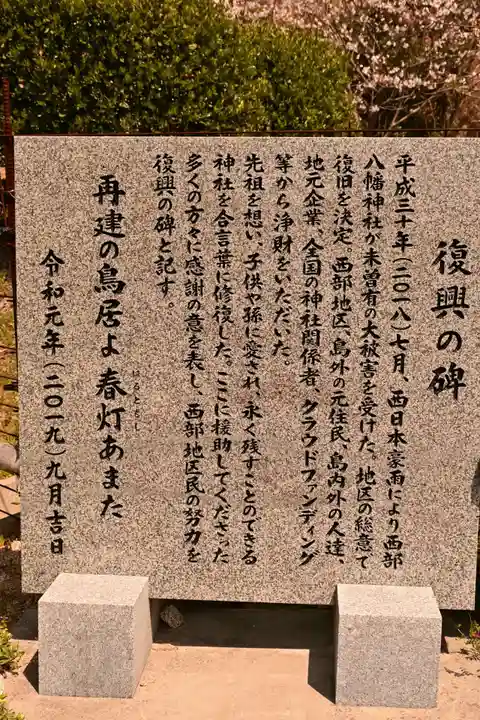 復興の碑
平成三十年(二〇一八)七月、西日本豪雨により西部
八幡神社が未曽有の大被害を受けた。地区の総意で
復旧を決定 西部地区、島外の元住民、島内外の人達、
地元企業、全国の神社関係者、クラウドファンディング
等から浄財をいただいた。
先祖を想い、子供や孫に愛され、永く残すことのできる
神社を合言葉に修復した。ここに援助してくださった
多くの方々に感謝の意を表し、西部地区民の努力を
復興の碑と記す。
再建の鳥居よ春灯あまた
はるともし
令和元年(二〇一九)九月吉日